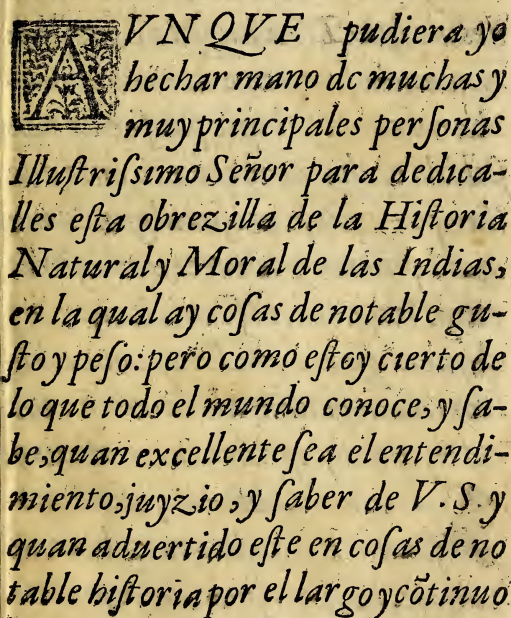 AVNQVE pudiera yo
hechar mano de muchas y
muy principales perſonas
Illuſtriſsimo Señor para dedica-
lles eſta obrezilla de la Hiſtoria
Natural y Moral de las Indias,
en la qual ay coſas de notable gu-
ſto y peſo: pero como eſtoy cierto de
lo que todo el mundo conoce, y ſa-
be, quan excellente ſea el entendi-
miento, juyzio, y ſaber de V. S. y
quan aduertido eſte en coſas de no
table hiſtoria por el largo y cõtinuo